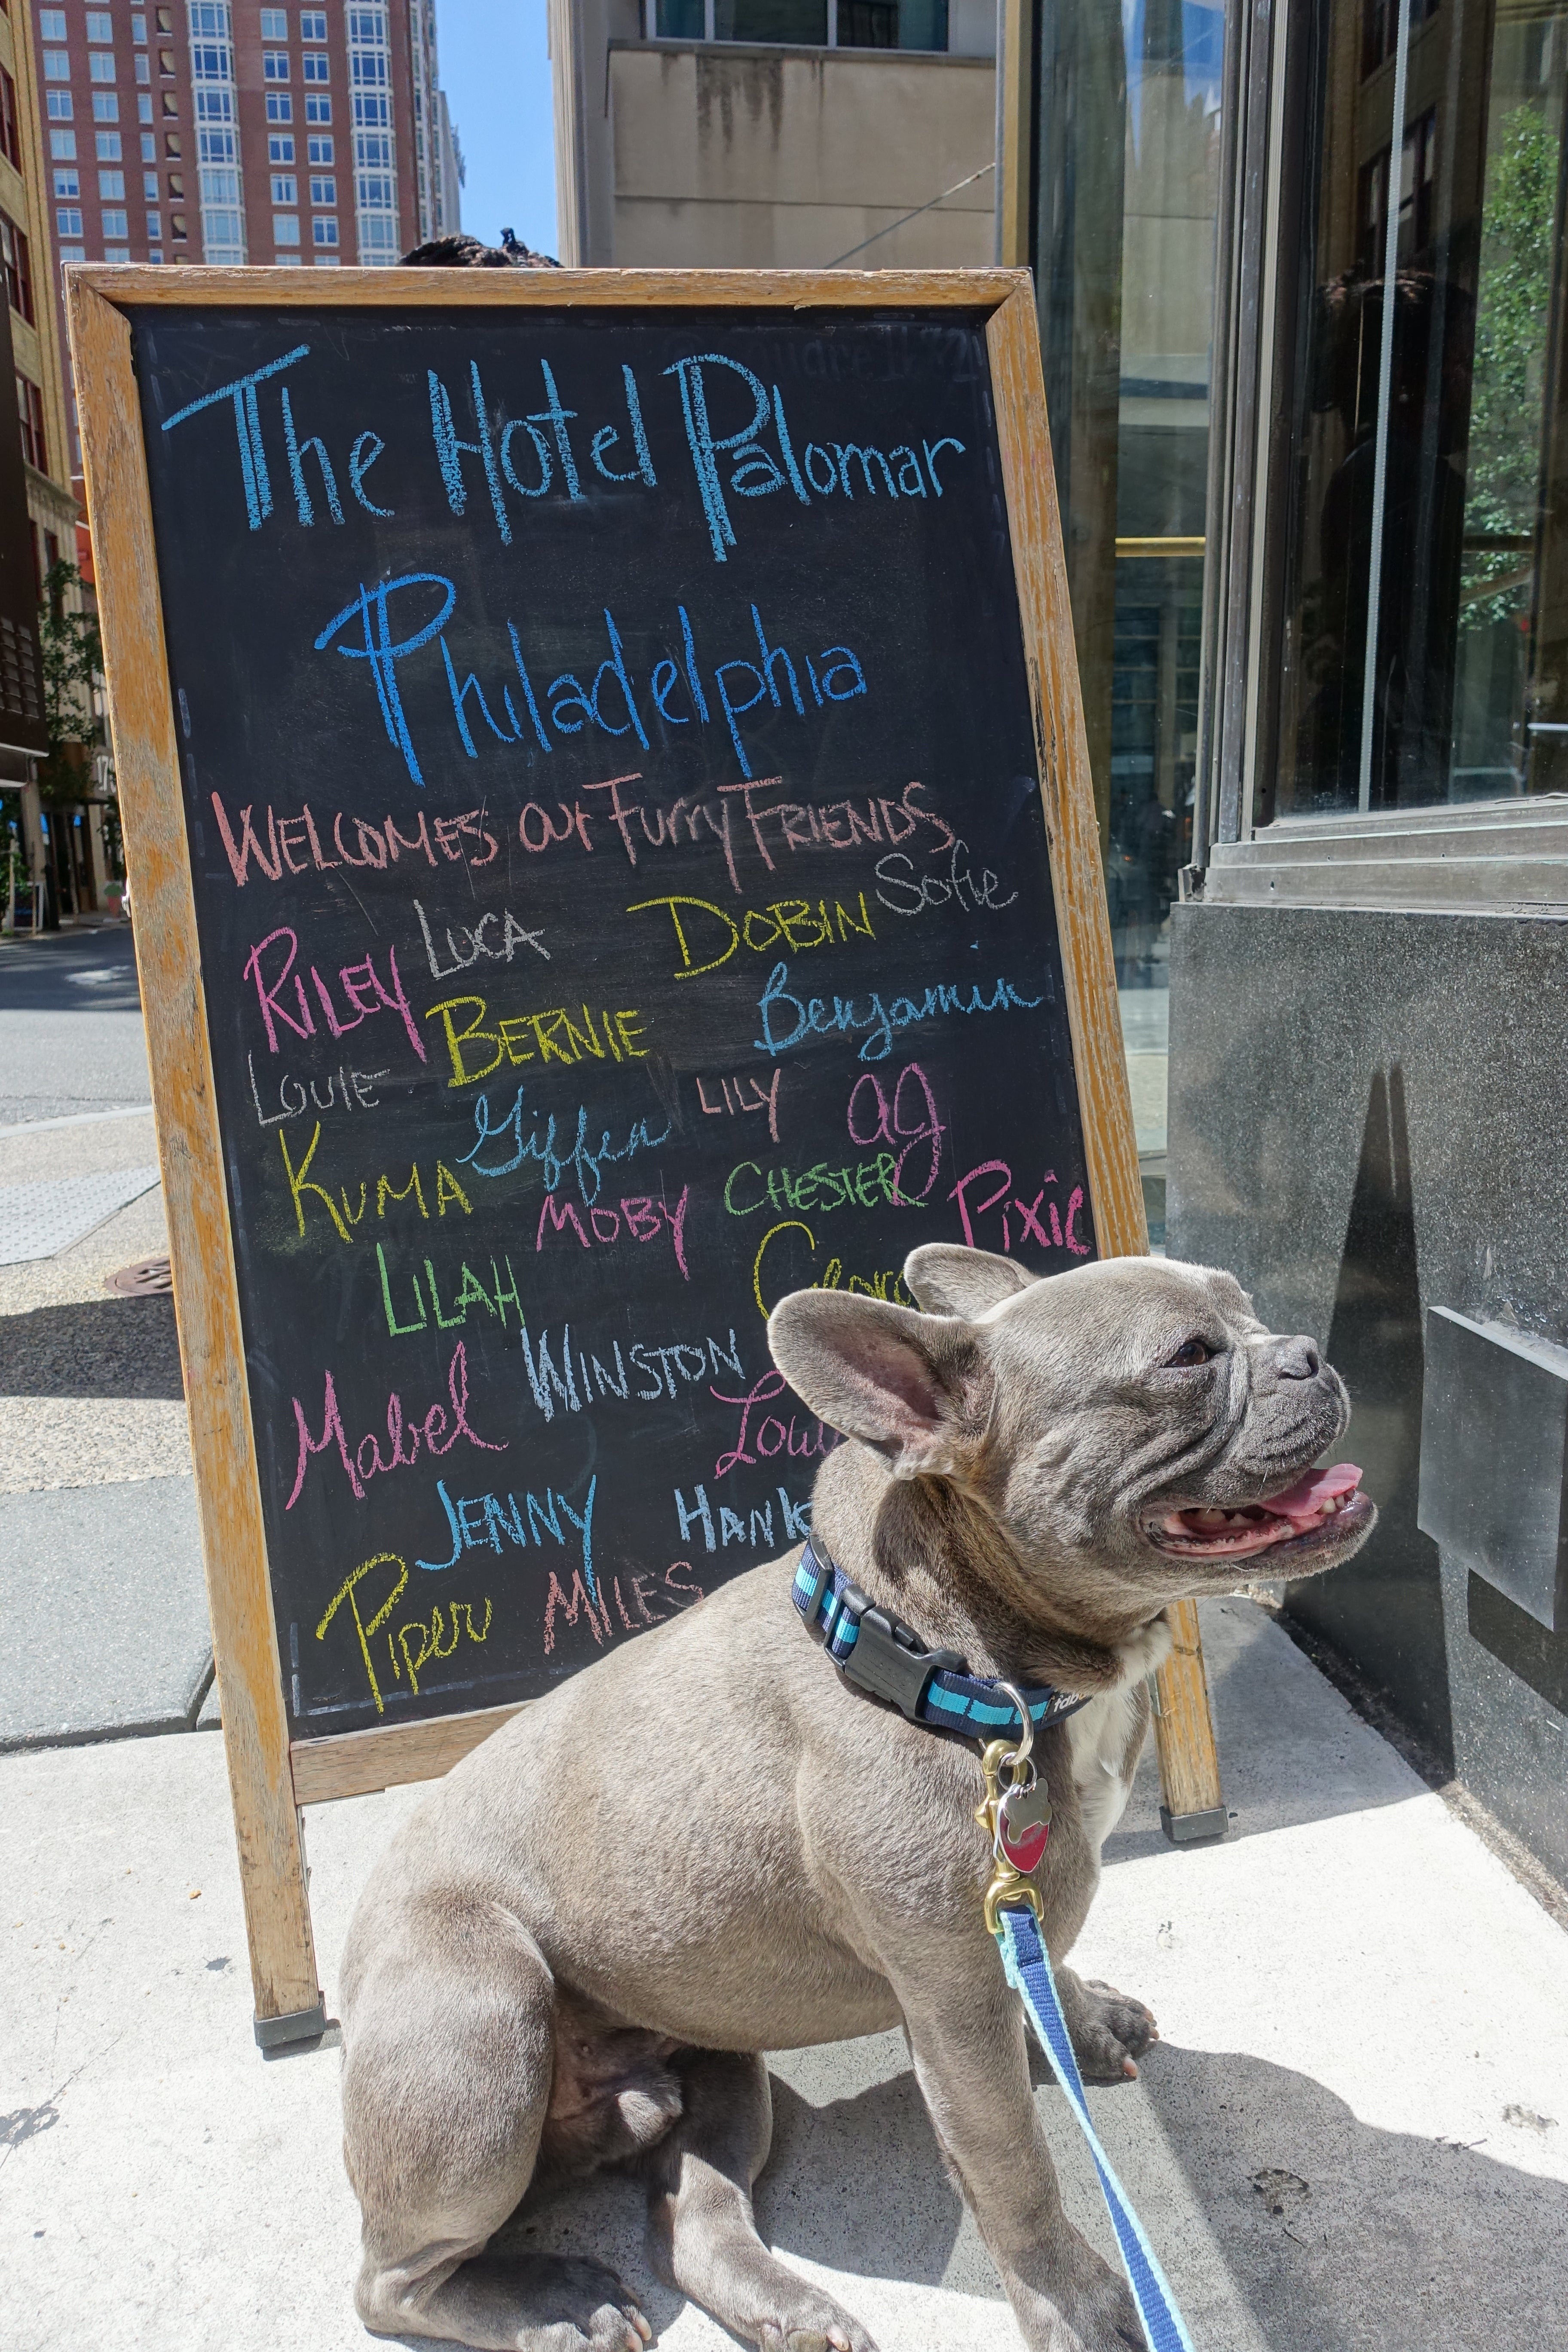 The Hotel Palomar
Philadelphia
WELCOMES our Furry FRIENDS
RILEY LUCA DOBIN Sofie
BERNIE Benjamin
LOUIE Giffen LILY AJ
KUMA MOBY CHESTER Pixie
LILAH
Mabel WINSTON
JENNY HANK
Piper MILES